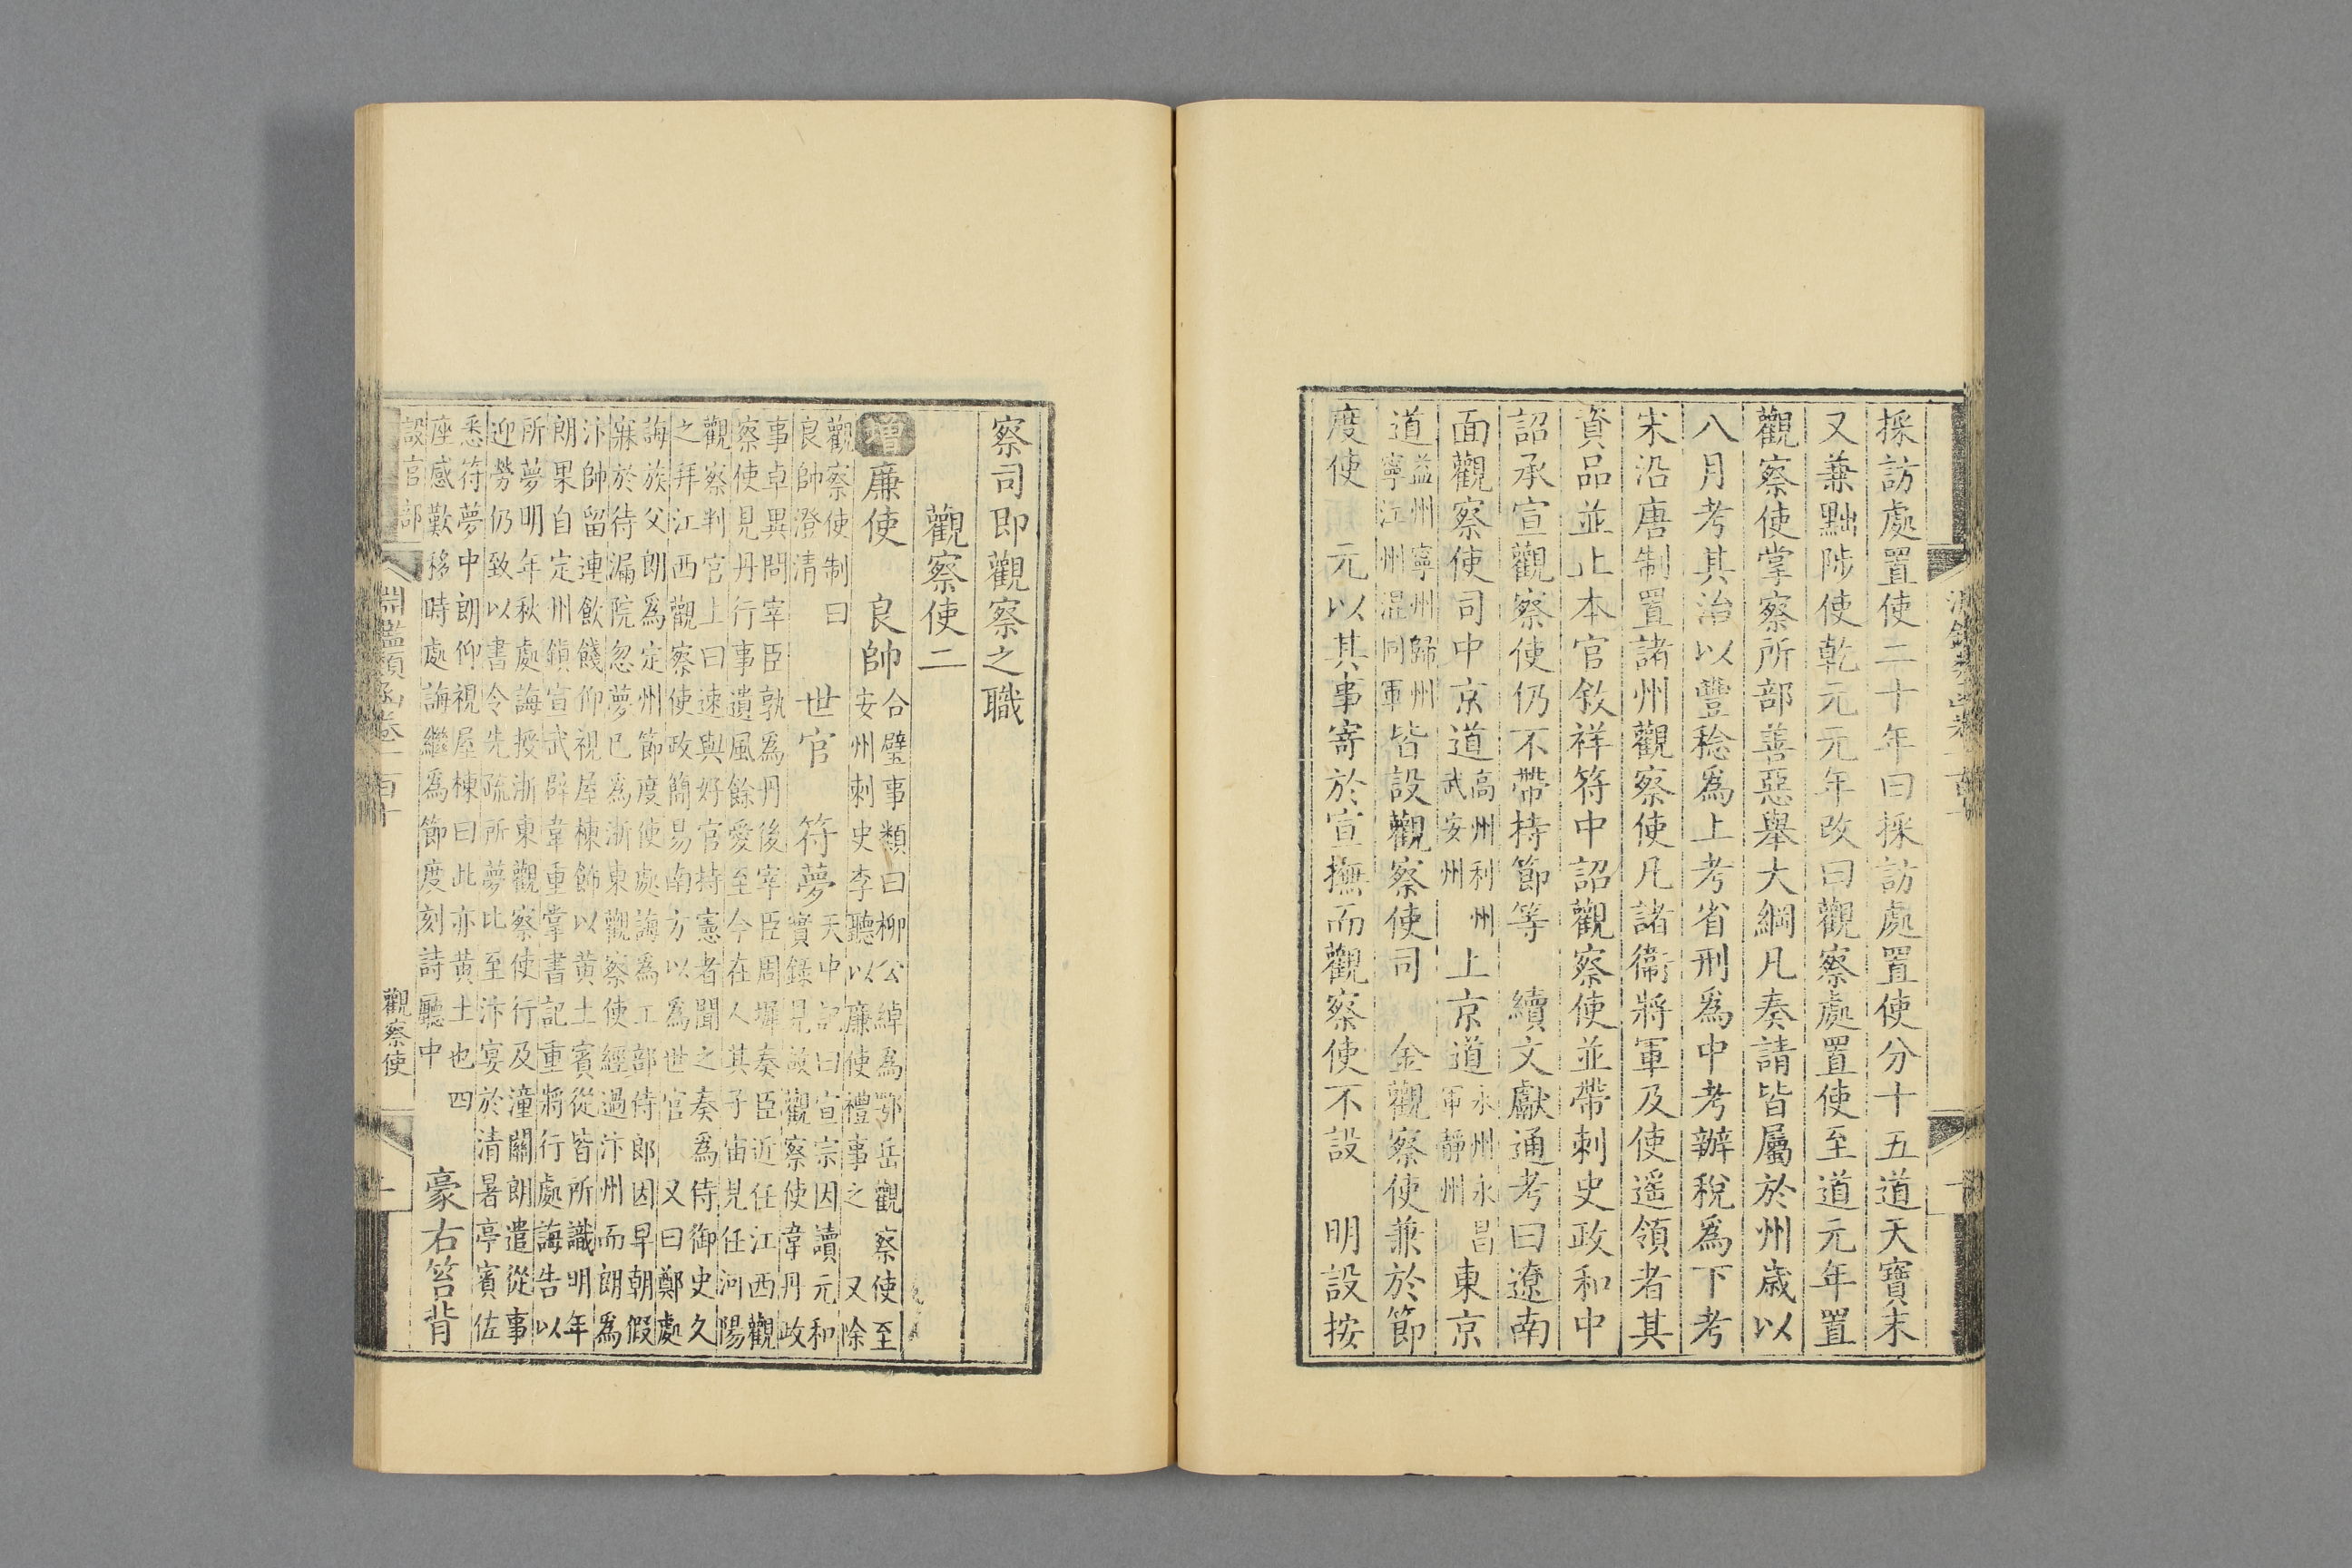 採訪處置使二十年曰採訪處置使分十五道天寶末
又兼黜陟使乾元元年改曰觀察處置使至道元年置
觀察使掌察所部善惡舉大綱凡奏請皆屬於州歲以
八月考其治以豐稔爲上考省刑爲中考辦稅爲下考
宋沿唐制置諸州觀察使凡諸衞將軍及使遥領者其
資品並止本官敘祥符中詔觀察使並帶刺史政和中
詔承宣觀察使仍不帶持節等　續文獻通考曰遼南
面觀察使司中京道高州利州武安州上京道永州永昌軍靜州東京
道益州寧州歸州寧江州混同軍皆設觀察使司　金觀察使兼於節
度使　元以其事寄於宣撫而觀察使不設　明設按
察司即觀察之職
觀察使二
增廉使　良帥合璧事類曰柳公綽爲鄂岳觀察使至安州刺史李聽以廉使禮事之　又除
觀察使制曰良帥澄清　世官　符夢天中記曰宣宗因讀元和實錄見故觀察使韋丹政
事卓異問宰臣孰爲丹後宰臣周墀奏臣近任江西觀
察使見丹行事遺風餘愛至今在人其子宙見任河陽
觀察判官上曰速與好官持憲者聞之奏爲侍御史久
之拜江西觀察使政簡易南方以爲世官　又曰鄭處
誨族父朗爲定州節度使處誨爲工部侍郎因早朝假
寐於待漏院忽夢已爲浙東觀察使經過汴州而朗爲
汴帥留連飲餞仰視屋棟飾以黃土賓從皆所識明年
朗果自定州鎮宣武辟韋重掌書記重將行處誨告以
所夢明年秋處誨授浙東觀察使行及潼關朗遣從事
迎勞仍致以書令先疏所夢比至汴宴於清暑亭賓佐
悉符夢中朗仰視屋棟曰此亦黃土也四
座感歎移時處誨繼爲節度刻詩聽中　豪右笞背
設官部
淵鑑類函卷一百十
觀察使